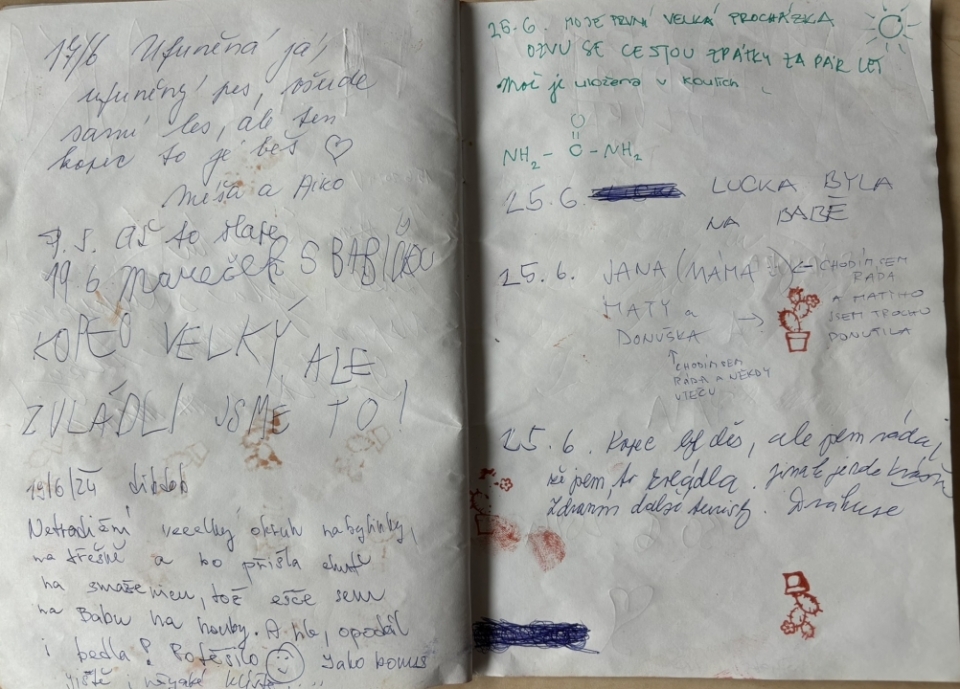 17/6 Ufuněná já,
ufuněný pes, všude
samý les, ale ten
kopec to je běs ♡
Míša a Aiko
7.5. ať to hraje
19.6. Mareček S BABIČKOU
KOPEC VELKÝ, ALE
ZVLÁDLI JSME TO!
19/6/24
Netradiční veselký okruh na bylinky,
na třešně a bo přišla chuť
na smaženicu, tož ešče sem
na Babu na houby. A hle, opodál
i bedla! Potěšilo ☺ Jako bonus
jistě i nějaké
25.6. MOJE PRVNÍ VELKÁ PROCHÁZKA
OZVU SE CESTOU ZPÁTKY ZA PÁR LET
Moč je uložena v koutích
O
NH2 – C – NH2
25.6. LUCKA BYLA
NA BABĚ
25.6. JANA (MÁMA) ← CHODÍM SEM
RÁDA
MATY a
A MATYHO
JSEM TROCHU
DONUTILA
DONUŠKA →
↑
CHODÍM SEM
RÁDA A NĚKDY
UTEČU
25.6. Kopec byl děs, ale jsem ráda,
že jsem to zvládla. Jinak je zde krásně
Zdravím další turisty.